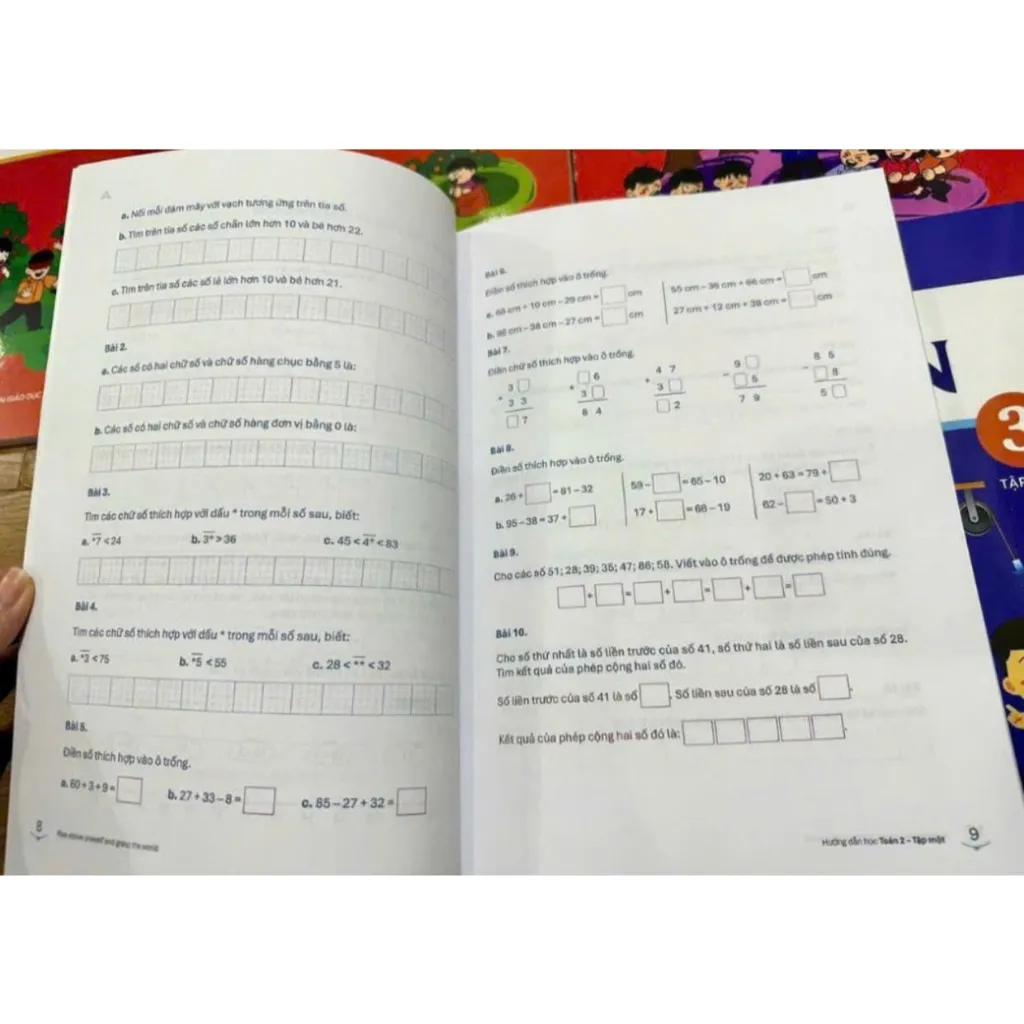 a. Nối mỗi đám mây với vạch tương ứng trên tia số.
b. Tìm trên tia số các số chẵn lớn hơn 10 và bé hơn 22.
c. Tìm trên tia số các số lẻ lớn hơn 10 và bé hơn 21.
Bài 2.
a. Các số có hai chữ số và chữ số hàng chục bằng 5 là:
b. Các số có hai chữ số và chữ số hàng đơn vị bằng 0 là:
Bài 3.
Tìm các chữ số thích hợp với dấu * trong mỗi số sau, biết:
a. *7 < 24 b. 3* > 36 c. 45 < 4* < 83
Bài 4.
Tìm các chữ số thích hợp với dấu * trong mỗi số sau, biết:
a. *3 < 75 b. *5 < 55 c. 28 < ** < 32
Bài 5.
Điền số thích hợp vào ô trống.
a. 60 + 3 + 9 = □ b. 27 + 33 – 8 = □ c. 85 – 27 + 32 = □
8
Rise above oneself and grasp the world
Bài 6.
Điền số thích hợp vào ô trống.
a. 68 cm + 10 cm – 29 cm = □ cm 55 cm – 36 cm + 66 cm = □ cm
b. 96 cm – 38 cm – 27 cm = □ cm 27 cm + 12 cm + 38 cm = □ cm
Bài 7.
Điền chữ số thích hợp vào ô trống.
3 □ □ 6 4 7 9 □ 8 5
+ + + – –
3 3 3 □ 3 □ □ 5 □ 8
□ 7 8 4 □ 2 7 9 5 □
Bài 8.
Điền số thích hợp vào ô trống.
a. 26 + □ = 81 – 32 59 – □ = 65 – 10 20 + 63 = 79 + □
b. 95 – 38 = 37 + □ 17 + □ = 66 – 19 62 – □ = 50 + 3
Bài 9.
Cho các số 51; 28; 39; 35; 47; 86; 58. Viết vào ô trống để được phép tính đúng.
□ + □ = □ + □ = □ + □ = □
Bài 10.
Cho số thứ nhất là số liền trước của số 41, số thứ hai là số liền sau của số 28.
Tìm kết quả của phép cộng hai số đó.
Số liền trước của số 41 là số □. Số liền sau của số 28 là số □.
Kết quả của phép cộng hai số đó là: □ □ □ □ □.
Hướng dẫn học Toán 2 – Tập một
9
GIÁO DỤC
N
3
TẬP